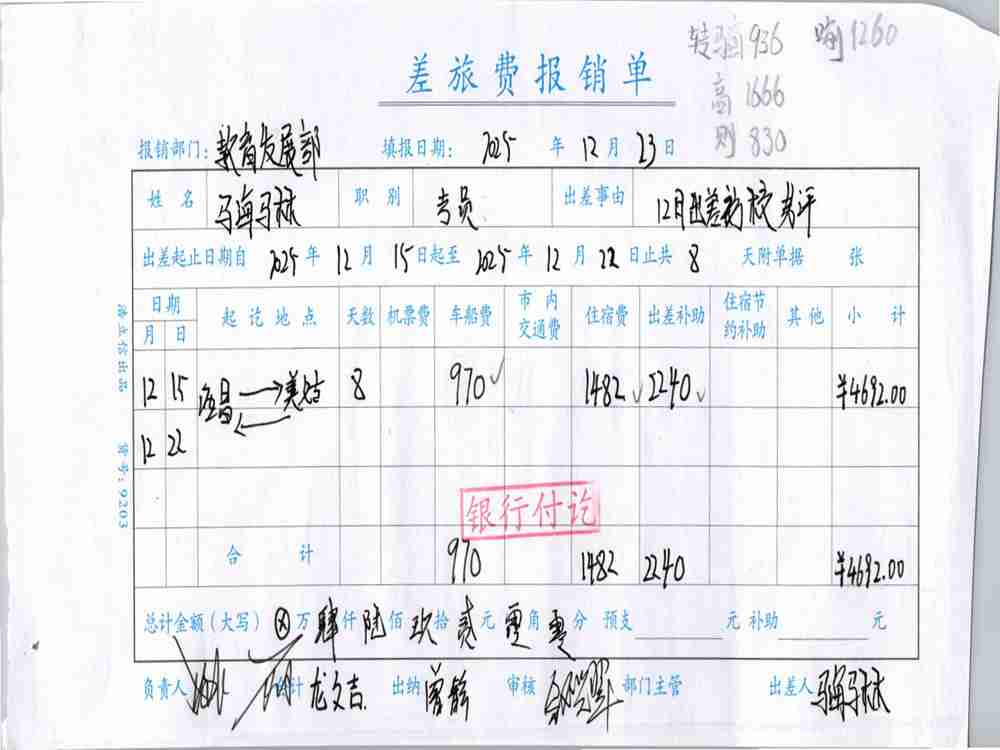 936 1260
差旅费报销单
高 1666
则 830
报销部门:教育发展部 填报日期: 2025 年 12 月 23 日
姓 名 职 别 专员 出差事由 12月出差新校考评
出差起止日期自 2025 年 12 月 15 日起至 2025 年 12 月 22 日止共 8 天附单据 张
日期 起 讫 地 点 天数 机票费 车船费 市 内 交通费 住宿费 出差补助 住宿节 约补助 其 他 小 计
月 日
12 15 8 970 1482 2240 ¥4692.00
12 22
银行付讫
合 计 970 1482 2240 ¥4692.00
总计金额(大写) ⊗ 万 肆 仟 陆 佰 玖 拾 贰 元 零 角 零 分 预支 元 补助 元
负责人 会计 龙文吉 出纳 审核 部门主管 出差人
浩立信出品 货号:9203